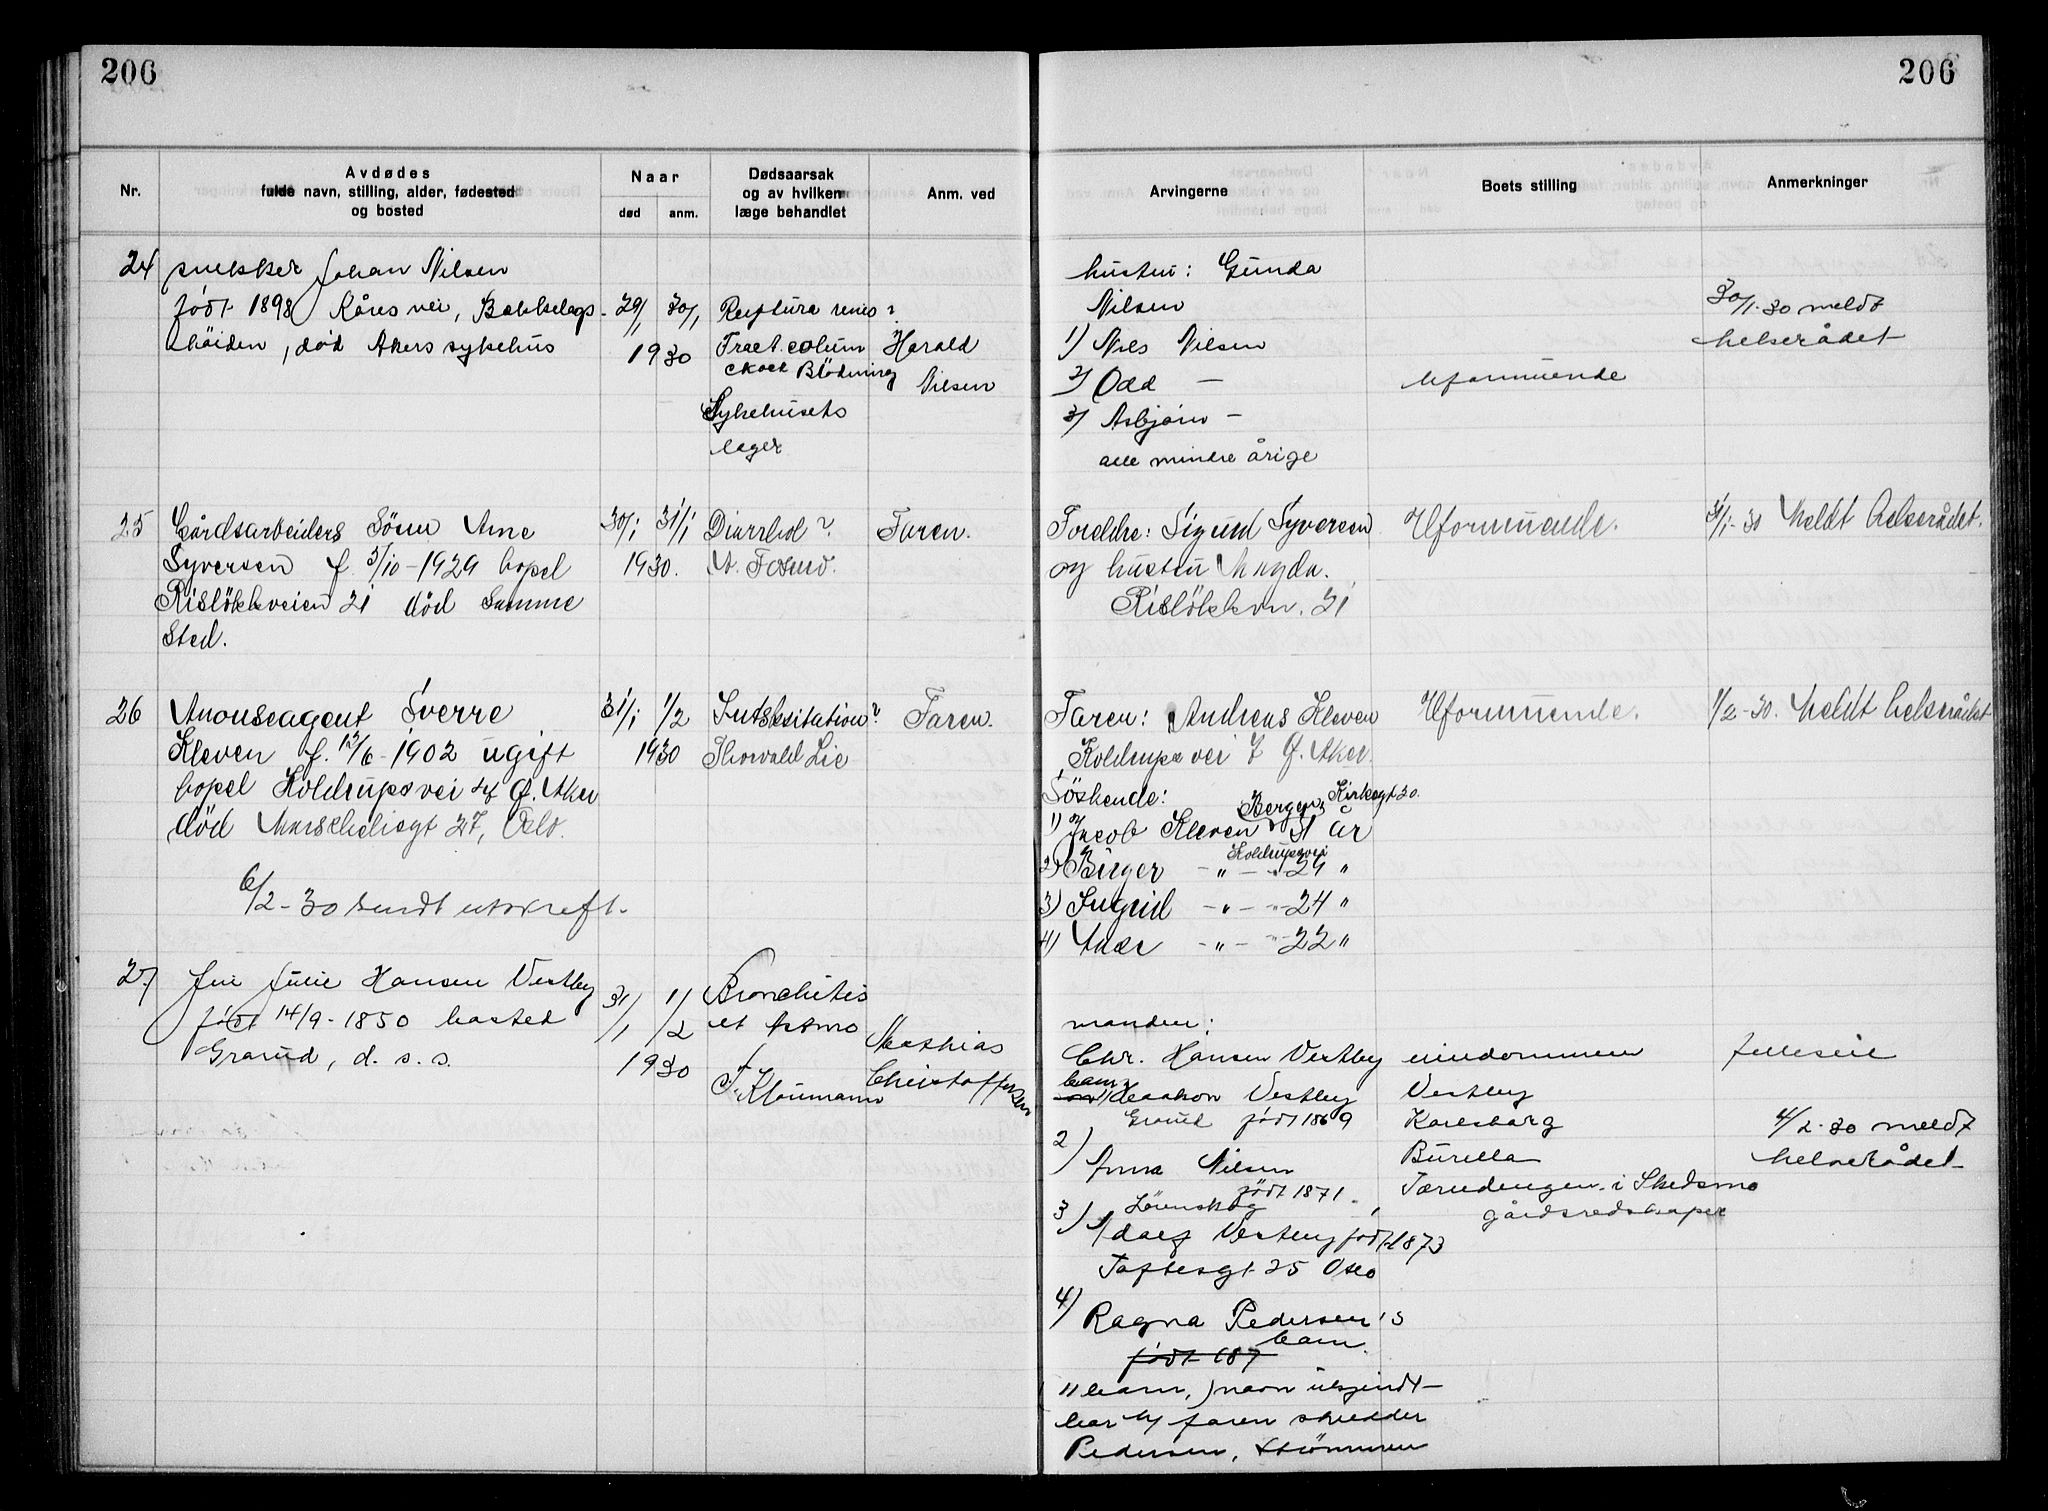 206
206
Nr.
Avdødes
fulde navn, stilling, alder, fødested
og bosted
Naar
død
anm.
Dødsaarsak
og av hvilken
læge behandlet
Anm. ved
Arvingerne
Boets stilling
Anmerkninger
24
snekker Johan Nilsen
født 1898 Kåres vei, Bekkelags-
høiden, død Akers sykehus
29/1 30/1
1930
Ruptura renis?
Fract. colum
chock Blødning
Sykehusets
leger
Harald
Nilsen
hustru: Gunda
Nilsen
1) Nils Nilsen
2) Odd —
3) Asbjørn —
alle mindre årige
Uformuende
30/1-30 meldt
helserådet
25
Gårdsarbeiders Søsn Arne
Syversen f. 3/10-1929 bopel
Risløkkveien 21 død Samme
Sted.
30/1 31/1
1930.
Diarrhol?
Faren.
Foreldre: Sigurd Syversen
og hustru Magda.
Risløkkvn. 21
Uformuende.
31/1-30 Meldt Helserådet.
26
Anonseagent Sverre
Kleven f. 12/6-1902 ugift
bopel Koldrupsvei 7 Ø. Aker
død Marskelisgt 27, Oslo.
6/2-30 sendt utskrift.
31/1 1/2
1930
Thorvald Lie
Faren.
Faren: Andreas Kleven
Koldrupsvei 7 Ø. Aker.
Søskende:
Bergen, Kirkegt 20.
1) Jacob Kleven 31 år
Koldrupsvei
2) Birger —„— 29 „
3) Ingrid —„— 24 „
4) —„— 22 „
Uformuende.
1/2-30. Meldt helserådet
27
fru Julie Hansen Vestby
født 14/9-1850 bosted
Grorud, d. s. s.
31/1 1/2
1930
Bronchitis
et Astma
F. Kloumann
Mathias
Christoffersen
manden:
Chr. Hansen Vestby
barn:
1) Haakon Vestby
Grorud født 1869
2) Anna Nilsen
født 1871
Lørenskog
3) Adolf Vestby født 1873
Toftesgt 25 Oslo
4) Ragna Pedersen's
barn.
født 187
11 barn, navn ubekjendt
bor h/ faren skredder
Pedersen, Strømmen
eiendommen
Vestby
Karlsborg
Burella
i Skedsmo
gårdsredskaper
felleseie
4/2-30 meldt
helserådet